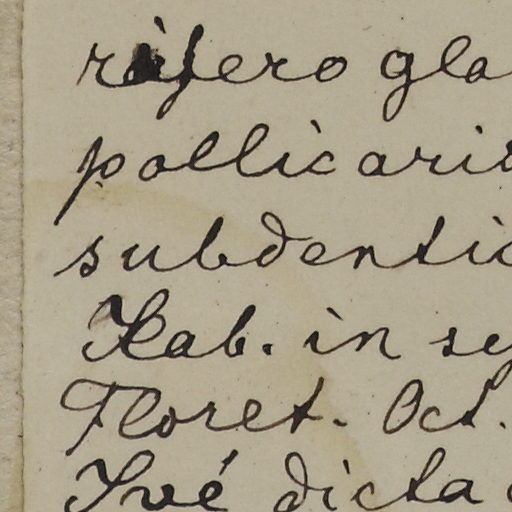 gla
pollicari
subdenti
Hab. in
Floret. Oct.
Ivé dicta